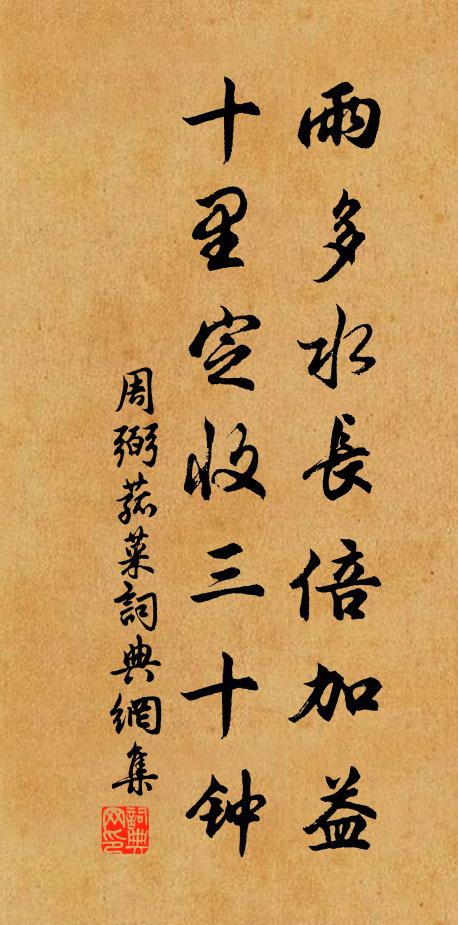 雨多水長倍加益
十里定收三十钟
周弼菰菜詞典網集
詞典网印